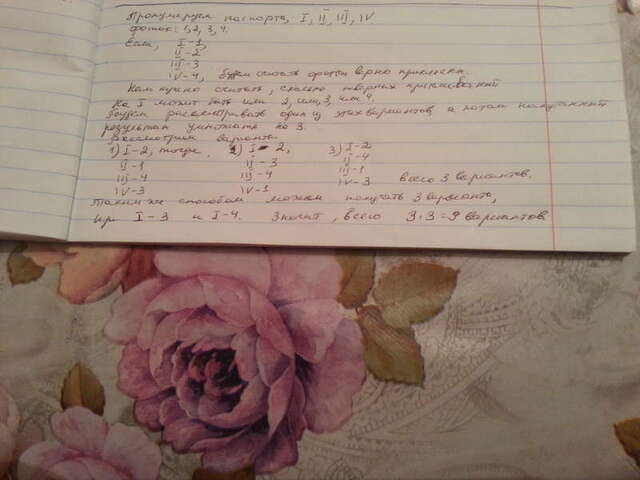 Пронумеруем паспорта I, II, III, IV
фоток: 1, 2, 3, 4.
Если, I-1,
II-2
III-3
IV-4, будем считать фотки верно приклеены.
Нам нужно считать, сколько неверных приклеиваний
На I может быть или 2, или 3, или 4.
Будем рассматривать один из этих вариантов, а потом полученный
результат умножать на 3.
Рассмотрим варианты
1) I-2, тогда, 2) I-2, 3) I-2
II-1 II-3 II-4
III-4 III-4 III-1
IV-3 IV-1 IV-3 всего 3 вариантов.
Таким же способом можем получать 3 варианта,
при I-3 и I-4. Значит, всего 3·3=9 вариантов